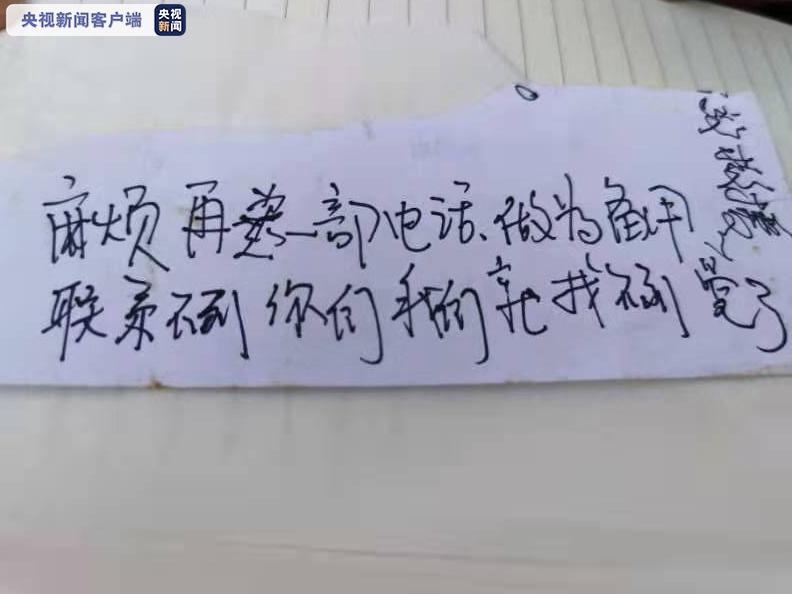 央视新闻客户端 央视新闻
麻烦再一部电话、做为备用
联系不到你们我们就找不到了